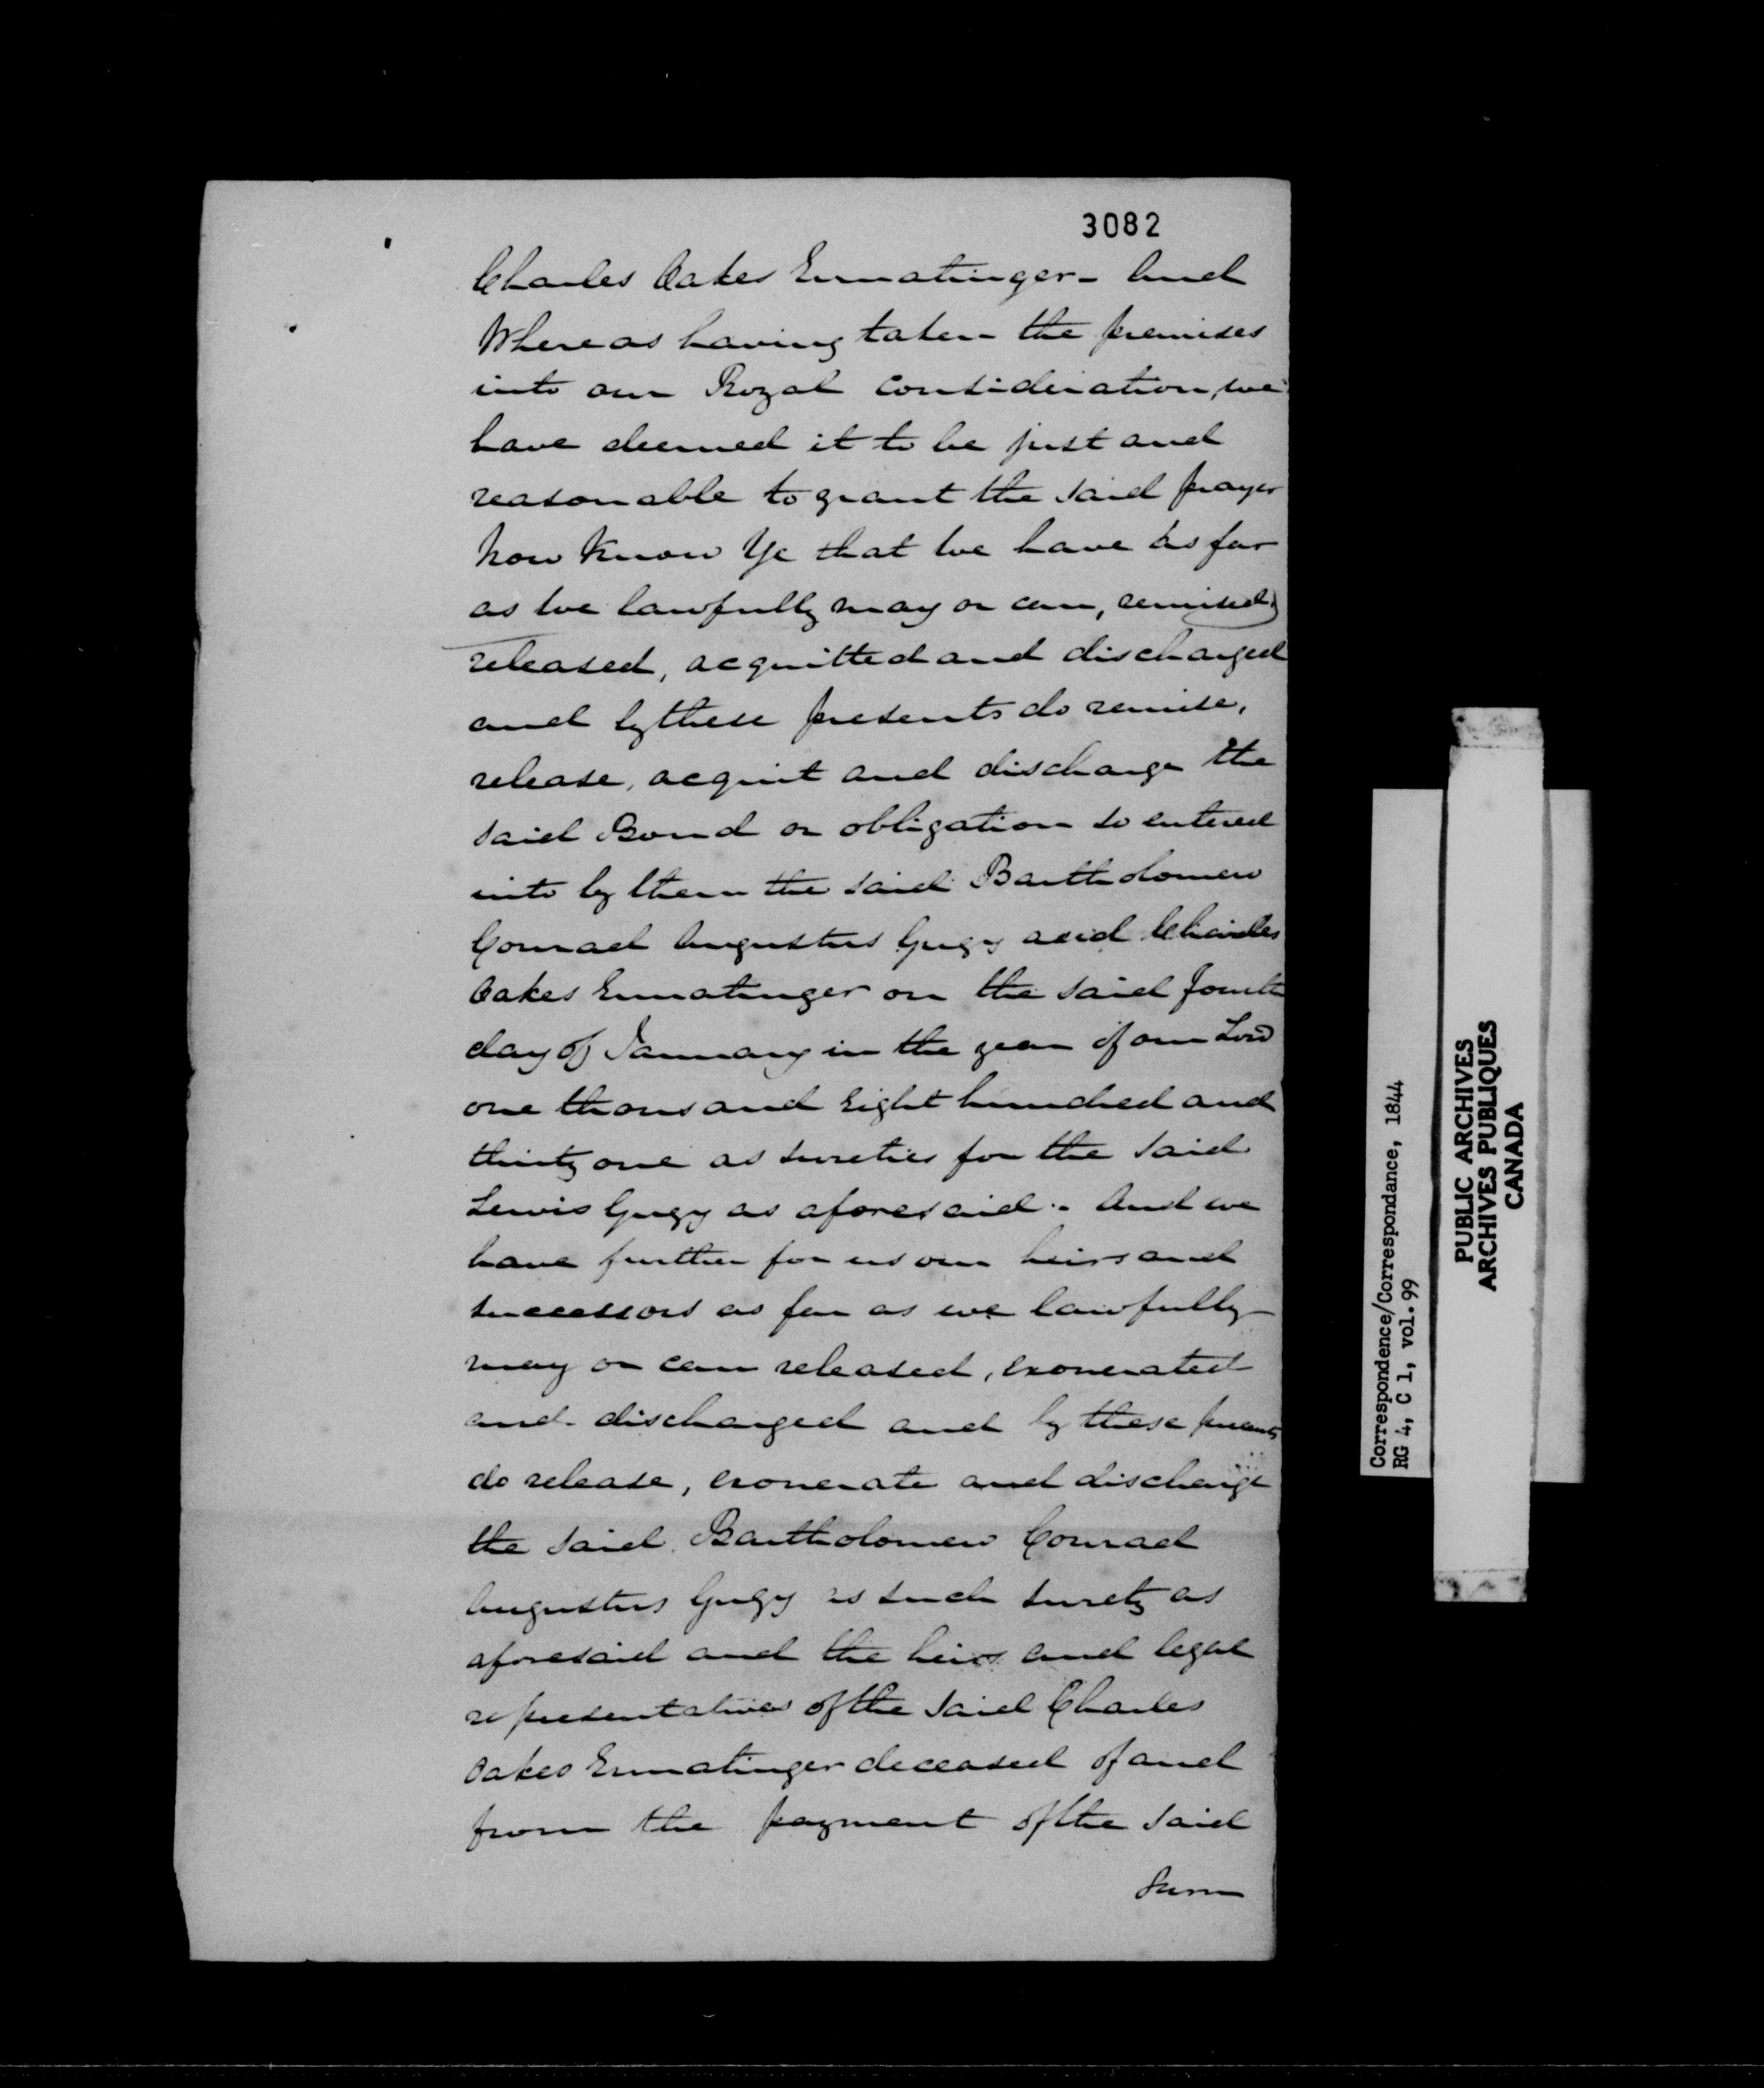 3082
Charles Oakes Ermatinger - And
Whereas having taken the premises
into our Royal consideration, we
have deemed it to be just and
reasonable to grant the said prayer
Now Know Ye that we have as far
as we lawfully may or can, remised,
released, acquitted and discharged
and by these presents do remise,
release, acquit and discharge the
said Bond or obligation so entered
into by them the said Bartholomew
Conrad Augustus Gugy and Charles
Oakes Ermatinger on the said fourth
day of January in the year of our Lord
one thousand Eight hundred and
thirty one as sureties for the said
Lewis Gugy as aforesaid :- And we
have further for us our heirs and
successors as far as we lawfully
may or can released, exonerated
and discharged and by these presents
do release, exonerate and discharge
the said Bartholomew Conrad
Augustus Gugy as such surety as
aforesaid and the heirs and legal
representatives of the said Charles
Oakes Ermatinger deceased of and
from the payment of the said
Sum
Correspondence/Correspondance, 1844
RG 4, C 1, vol. 99
PUBLIC ARCHIVES
ARCHIVES PUBLIQUES
CANADA